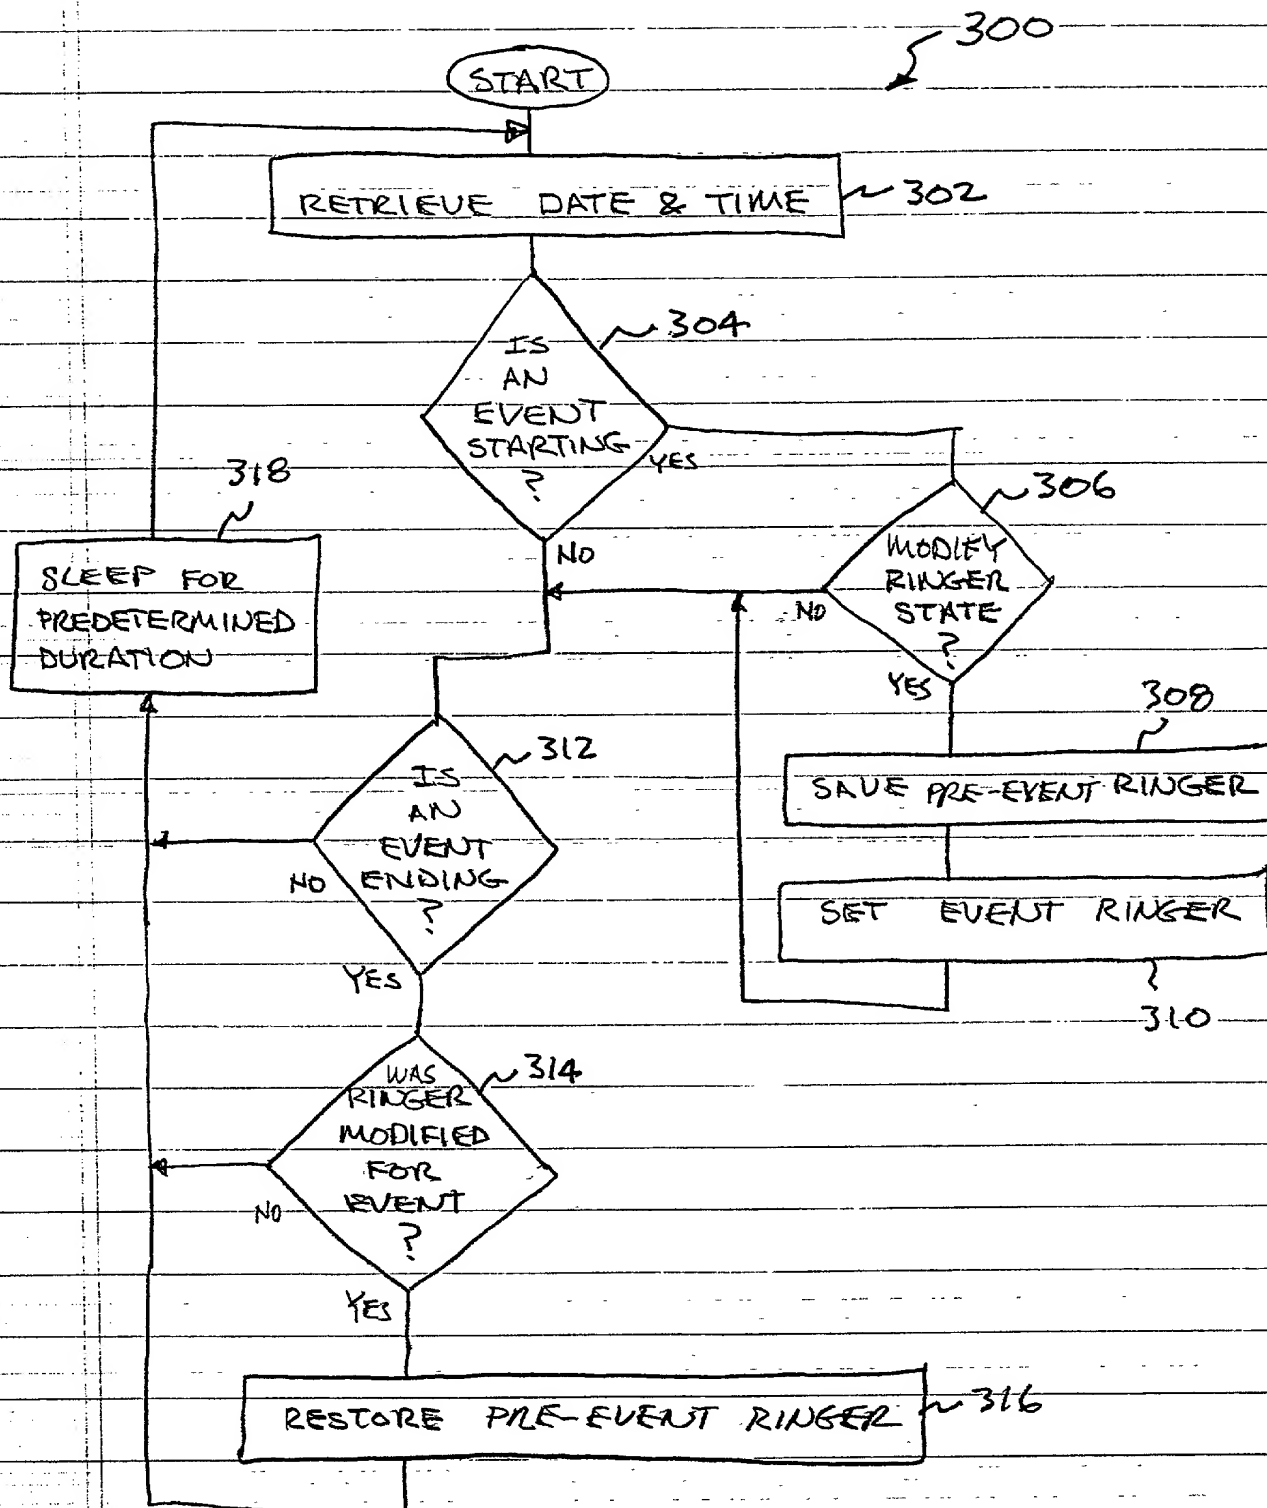 300
START
RETRIEVE DATE & TIME
302
304
IS
AN
EVENT
STARTING
?
YES
NO
318
SLEEP FOR
PREDETERMINED
DURATION
306
MODIFY
RINGER
STATE
?
NO
YES
308
SAVE PRE-EVENT RINGER
SET EVENT RINGER
310
312
IS
AN
EVENT
ENDING
?
NO
YES
314
WAS
RINGER
MODIFIED
FOR
EVENT
?
NO
YES
RESTORE PRE-EVENT RINGER
316